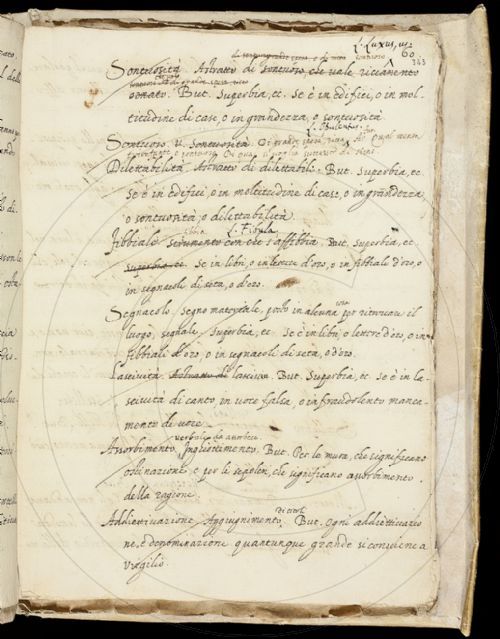 L. Luxus, us.
60
343
Sontuosità. Astratto di sontuoso, che vale riccamente
ornato. But. Superbia, ec. Se è in edifici, o in mol-
titudine di case, o in grandezza, o sontuosità.
Sontuoso. v. Sontuosità. Di grande spesa, ricco.
Dilettabilità. Astratto di dilettabile. But. Superbia, ec.
Se è in edifici, o in moltitudine di case, o in grandezza
o sontuosità, o dilettabilità.
L. Fibula.
Fibbiale. Strumento con che s'affibbia. But. Superbia, ec.
superbia, ec. Se in libri, o in lettere d'oro, o in fibbiali d'oro, o
in segnacoli di seta, o d'oro.
Segnacolo. Segno materiale, posto in alcuna cosa per ritrovare il
luogo, segnale. Superbia, ec. Se è in libri, o lettere d'oro, o in
fibbiali d'oro, o in segnacoli di seta, o d'oro.
Lascività. Astratto di lascivo. But. Superbia, ec. se è in la-
scività di canto, in voce falsa, o in fraudolento manca-
mento di voce.
Assorbimento. Inghiottimento. But. Per le mura, che significano
ostinazione, e per le sepolcri, che significano assorbimento
della ragione.
Addiettivazione. Aggiugnimento. But. Ogni addiettivazio
ne, e denominazione quantunque grande si conviene a
Virgilio.